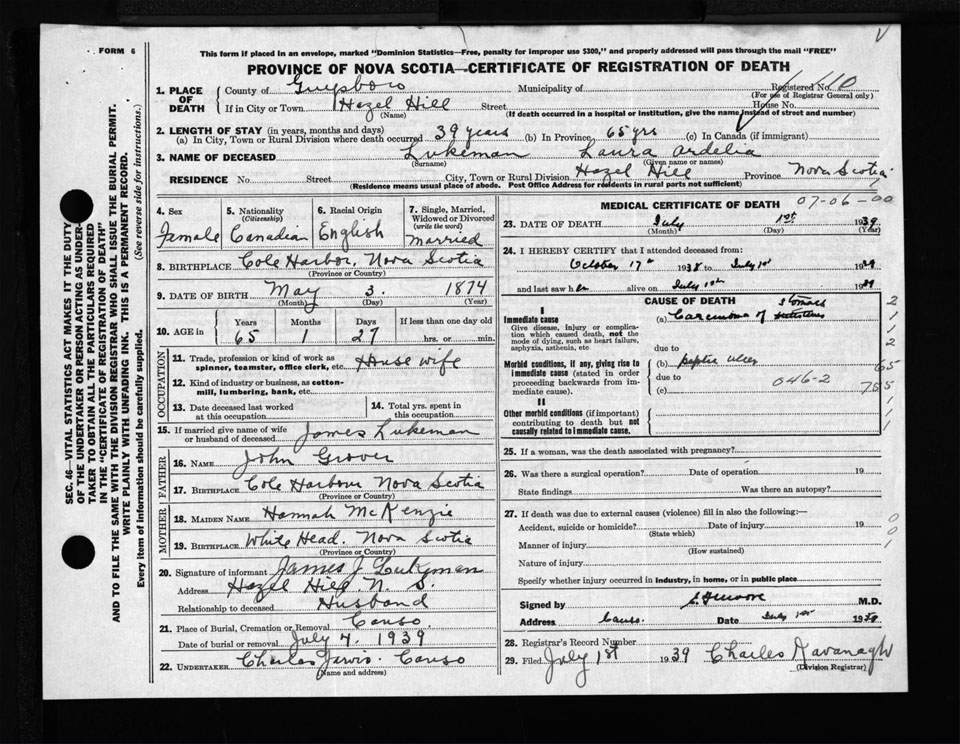 FORM 6
This form if placed in an envelope, marked "Dominion Statistics—Free, penalty for improper use $300," and properly addressed will pass through the mail "FREE"
PROVINCE OF NOVA SCOTIA—CERTIFICATE OF REGISTRATION OF DEATH
SEC. 46—VITAL STATISTICS ACT MAKES IT THE DUTY
OF THE UNDERTAKER OR PERSON ACTING AS UNDER-
TAKER TO OBTAIN ALL THE PARTICULARS REQUIRED
IN THE "CERTIFICATE OF REGISTRATION OF DEATH"
AND TO FILE THE SAME WITH THE DIVISION REGISTRAR WHO SHALL ISSUE THE BURIAL PERMIT.
WRITE PLAINLY WITH UNFADING INK. THIS IS A PERMANENT RECORD.
Every item of information should be carefully supplied. (See reverse side for instructions.)
1. PLACE OF DEATH County of Guysboro Municipality of Registered No. 610
(For use of Registrar General only)
If in City or Town Hazel Hill Street House No.
(Name) (If death occurred in a hospital or institution, give the name instead of street and number)
2. LENGTH OF STAY (in years, months and days)
(a) In City, Town or Rural Division where death occurred 39 years (b) In Province 65 yrs (c) In Canada (if immigrant)
3. NAME OF DECEASED Lukeman Laura Ardelia
(Surname) (Given name or names)
RESIDENCE No. Street City, Town or Rural Division Hazel Hill Province Nova Scotia
(Residence means usual place of abode. Post Office Address for residents in rural parts not sufficient)
4. Sex Female
5. Nationality (Citizenship) Canadian
6. Racial Origin English
7. Single, Married, Widowed or Divorced (write the word) Married
8. BIRTHPLACE Cole Harbor, Nova Scotia
(Province or Country)
9. DATE OF BIRTH May 3. 1874
(Month) (Day) (Year)
10. AGE in Years Months Days If less than one day old
65 1 27 hrs. or min.
OCCUPATION
11. Trade, profession or kind of work as spinner, teamster, office clerk, etc. House wife
12. Kind of industry or business, as cotton-mill, lumbering, bank, etc.
13. Date deceased last worked at this occupation
14. Total yrs. spent in this occupation
15. If married give name of wife or husband of deceased James Lukeman
FATHER
16. NAME John Grover
17. BIRTHPLACE Cole Harbour Nova Scotia
(Province or Country)
MOTHER
18. MAIDEN NAME Hannah McKenzie
19. BIRTHPLACE White Head. Nova Scotia
(Province or Country)
20. Signature of informant James J Lukeman
Address Hazel Hill N. S.
Relationship to deceased Husband
21. Place of Burial, Cremation or Removal Canso.
Date of burial or removal July 4. 1939
22. UNDERTAKER Charles Jarvis. Canso
(Name and address)
MEDICAL CERTIFICATE OF DEATH 07-06-00
23. DATE OF DEATH July 1st 1939
(Month) (Day) (Year)
24. I HEREBY CERTIFY that I attended deceased from:
October 17th 1938 to July 1st 1939
and last saw her alive on July 1st 1939
CAUSE OF DEATH
I
Immediate cause
Give disease, injury or complication which caused death, not the mode of dying, such as heart failure, asphyxia, asthenia, etc
(a) Carcinoma of stomach
due to
Morbid conditions, if any, giving rise to immediate cause (stated in order proceeding backwards from immediate cause).
(b) peptic ulcer
due to 046-2
(c)
II
Other morbid conditions (if important) contributing to death but not causally related to immediate cause.
25. If a woman, was the death associated with pregnancy?
26. Was there a surgical operation? Date of operation 19
State findings Was there an autopsy?
27. If death was due to external causes (violence) fill in also the following:—
Accident, suicide or homicide? Date of injury 19
(State which)
Manner of injury
(How sustained)
Nature of injury
Specify whether injury occurred in industry, in home, or in public place
Signed by M.D.
Address Canso. Date July 1st 1939
28. Registrar's Record Number
29. Filed July 1st 1939 Charles Kavanagh
(Division Registrar)